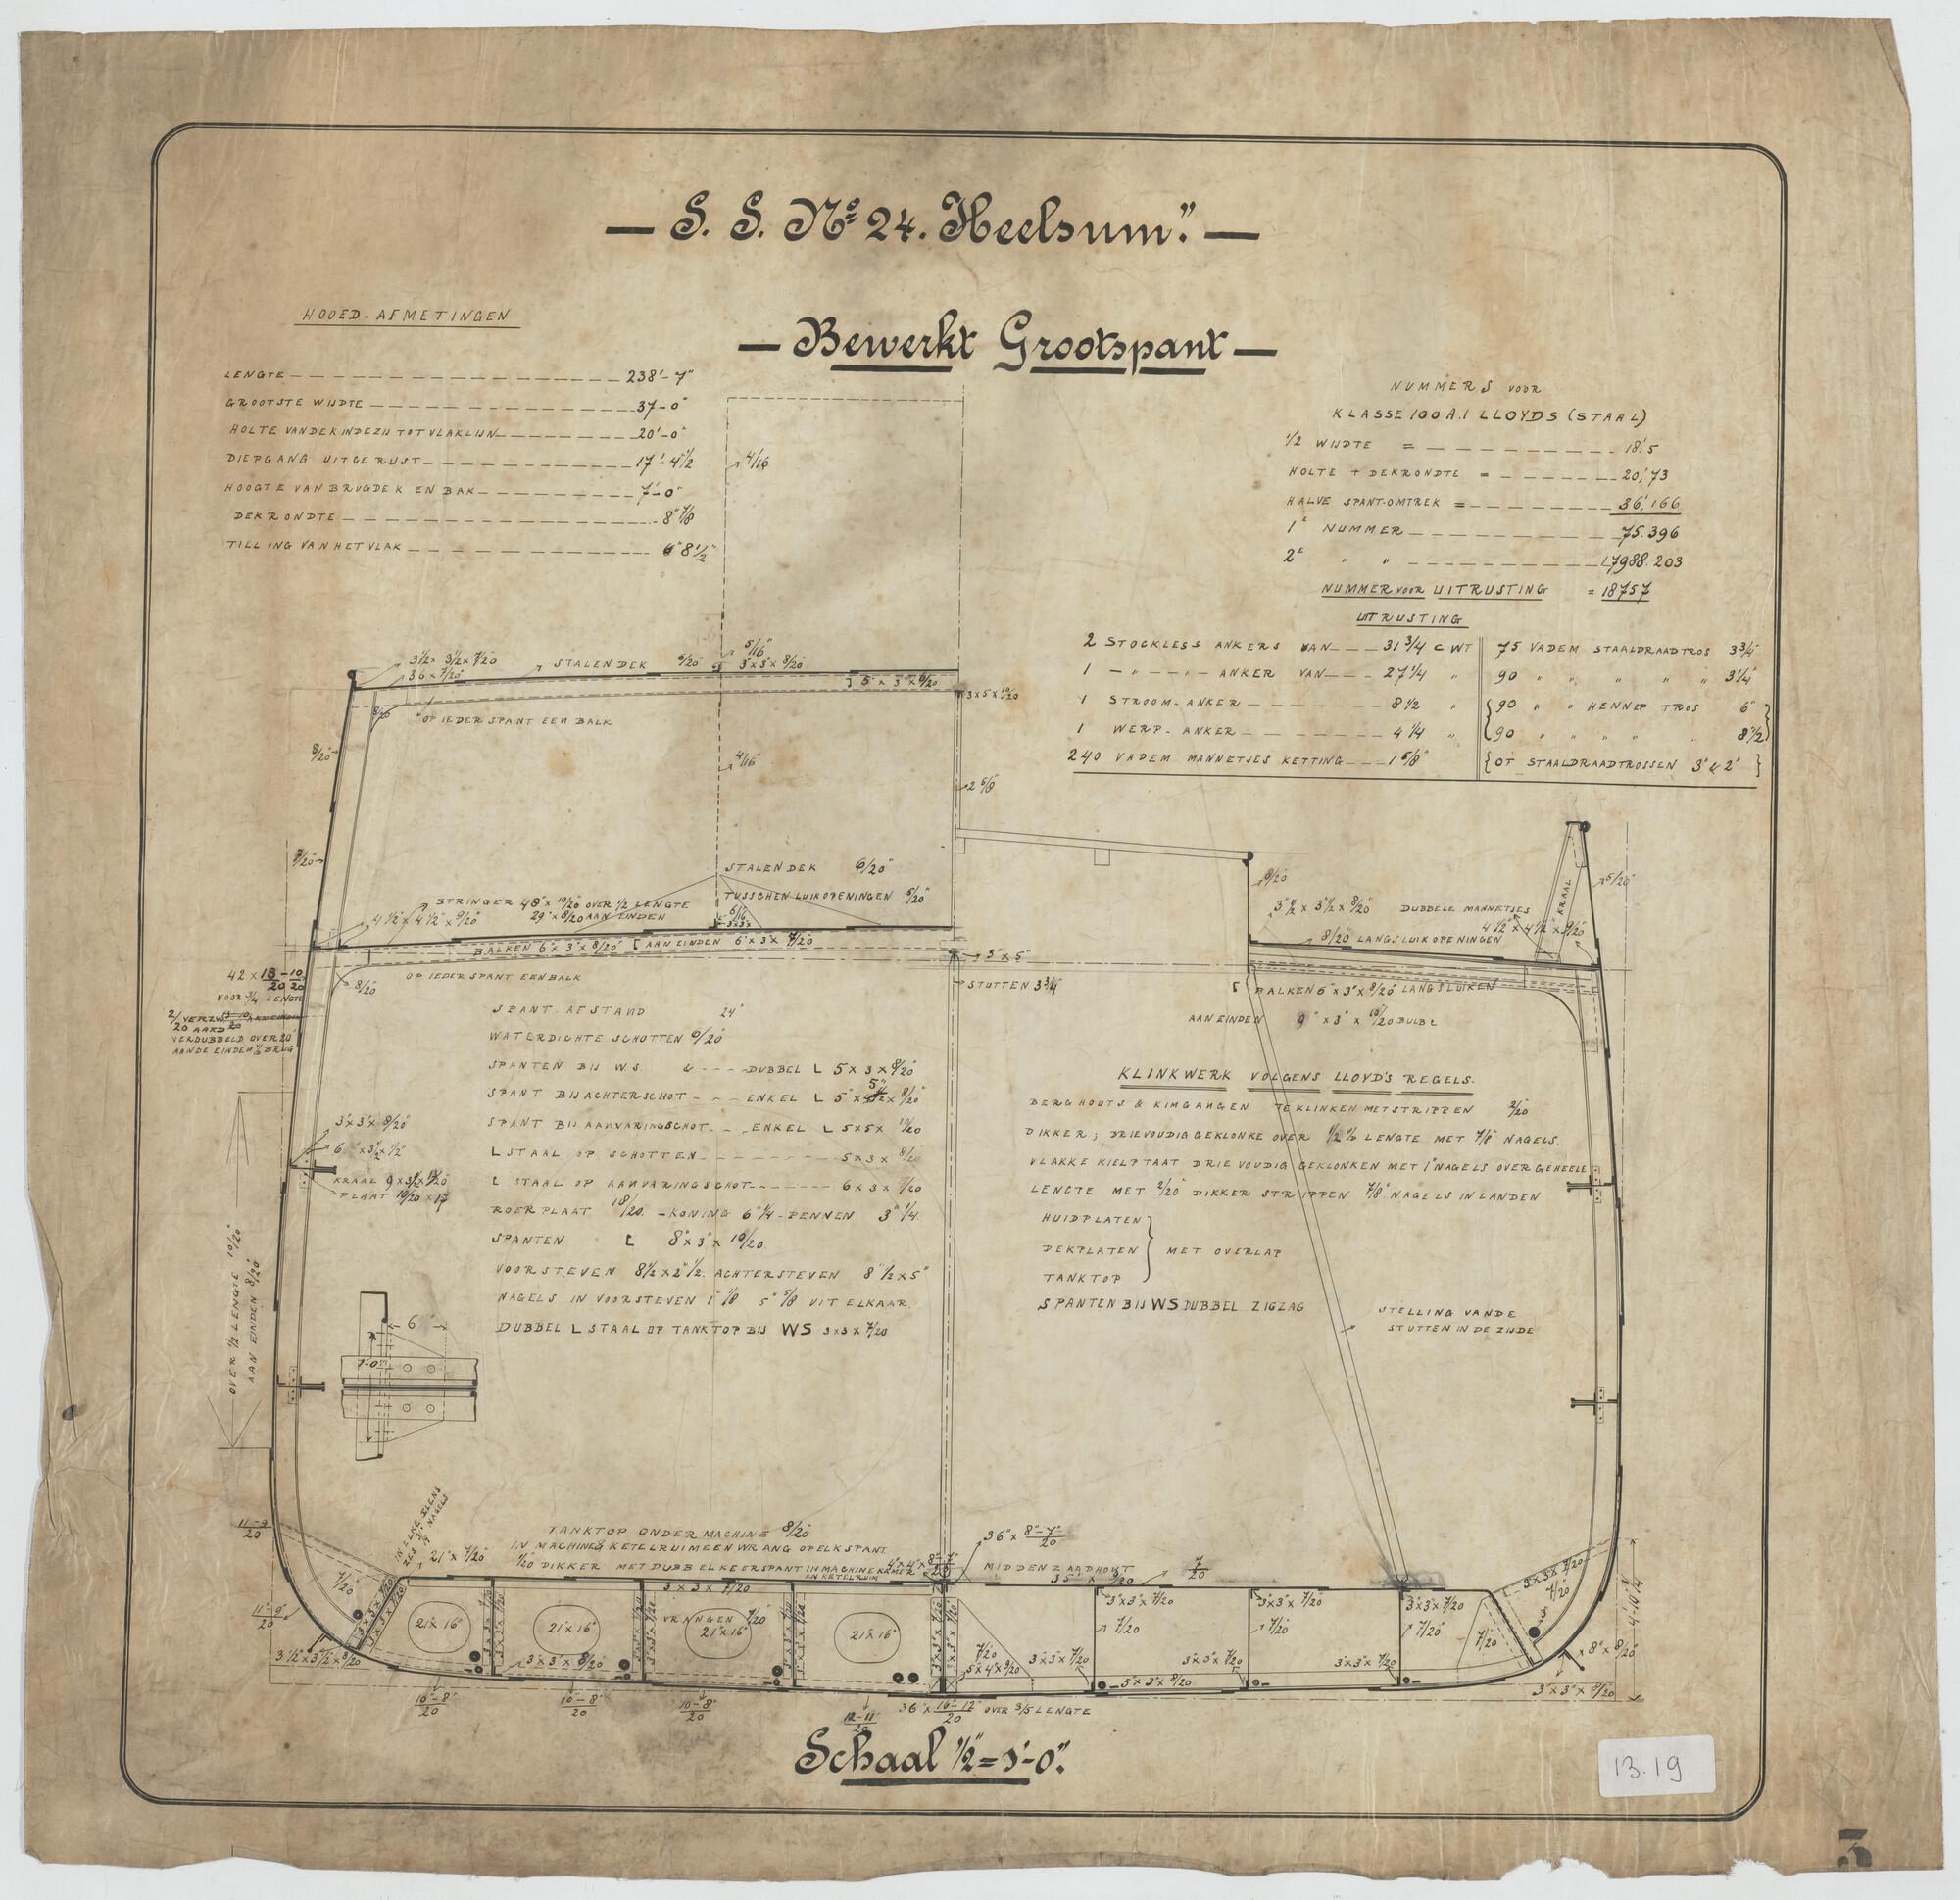 S. S. Nº 24. Heelsum."
Bewerkt Grootspant
HOOFD-AFMETINGEN
LENGTE 238'-7"
GROOTSTE WIJDTE 37-0"
HOLTE VAN DEK IN DE ZIJ TOT VLAKLIJN 20'-0"
DIEPGANG UITGERUST 17'-4½
HOOGTE VAN BRUGDEK EN BAK 7'-0"
DEKRONDTE 8" 7/8
TILLING VAN HET VLAK 8½"
NUMMERS VOOR
KLASSE 100 A.I LLOYDS (STAAL)
½ WIJDTE = 18'.5
HOLTE + DEKRONDTE = 20',73
HALVE SPANT-OMTREK = 36,'166
1E NUMMER 75.396
2E " " 17988.203
NUMMER VOOR UITRUSTING = 18757
UITRUSTING
2 STOCKLESS ANKERS VAN 31¾ CWT
1 " " ANKER VAN 27¼ "
1 STROOM-ANKER 8½ "
1 WERP-ANKER 4¼ "
240 VADEM MANNETJES KETTING 1 5/8"
75 VADEM STAALDRAADTROS 3¾"
90 " " " " 3¼"
90 " " HENNEP TROS 6"
90 " " " " 8½"
OF STAALDRAADTROSSEN 3" & 2"
4/16
3½ x 3½ x 7/20
36 x 7/20
STALEN DEK 6/20"
5/16
3"x3"x 8/20
5" x 3" x 6/20
3 x 5 x 10/20
8/20
OP IEDER SPANT EEN BALK
8/20"
4/16
2 5/8
7/20"
STALEN DEK 6/20"
TUSSCHEN LUIKOPENINGEN 6/20"
STRINGER 48" x 10/20 OVER ½ LENGTE
29" x 8/20 AAN EINDEN
4½" x 4½" x 9/20
6/16
3x3x
BALKEN 6" x 3" x 8/20" AAN EINDEN 6" x 3 x 7/20
OP IEDER SPANT EEN BALK
8/20
3" x 5"
STUTTEN 3¾"
42 x 13-10
20 20
VOOR ¾ LENGTE
VERDUBBELD OVER 20'
AAN DE EINDEN BRUG
8/20
3"½ x 3"½ x 8/20
DUBBELE MANNETJES
4½" x 4½" x 9/20
KRAAL
5/20"
8/20 LANGS LUIKOPENINGEN
BALKEN 6" x 3" x 8/20" LANGS LUIKEN
AAN EINDEN 9" x 3" x 10/20 BULB L
SPANT. AFSTAND 24"
WATERDICHTE SCHOTTEN 6/20"
SPANTEN BIJ W.S. DUBBEL L 5 x 3 x 8/20
SPANT BIJ ACHTERSCHOT ENKEL L 5" x 5" x 8/20"
SPANT BIJ AANVARINGSCHOT ENKEL L 5x5x 10/20
L STAAL OP SCHOTTEN 5x3x 8/20
L STAAL OP AANVARINGSCHOT 6x3x 7/20
ROERPLAAT 18/20 - KONING 6"¼ - PENNEN 3"¼
SPANTEN 8" x 3" x 10/20
VOORSTEVEN 8½ x 2"½ ACHTERSTEVEN 8"½ x 5"
NAGELS IN VOORSTEVEN 1"1/8 5"5/8 UIT ELKAAR
DUBBEL L STAAL OP TANKTOP BIJ WS 3x3x 7/20
KLINKWERK VOLGENS LLOYD'S REGELS.
BERGHOUTS & KIMGANGEN TE KLINKEN MET STRIPPEN 2/20
DIKKER; DRIEVOUDIG GEKLONKE OVER ½ LENGTE MET 7/8" NAGELS.
VLAKKE KIELPTAAT DRIE VOUDIG GEKLONKEN MET 1" NAGELS OVER GEHEELE
LENGTE MET 2/20" DIKKER STRIPPEN 7/8" NAGELS IN LANDEN
HUIDPLATEN
DEKPLATEN MET OVERLAP
TANKTOP
SPANTEN BIJ WS DUBBEL ZIGZAG
STELLING VAN DE
STUTTEN IN DE ZIJDE
3"x3"x 8/20
6 x 3½ x ½"
KRAAL 9 x 3½ x
PLAAT 10/20 x 17
OVER ½ LENGTE 10/20
AAN EINDEN 8/20
6
1'-0"
IN ELKE FLENS
ZES NAGELS
TANKTOP ONDER MACHINE 8/20
IN MACHINE & KETELRUIM EEN WRANG OP ELK SPANT
1/20 DIKKER MET DUBBEL KEERSPANT IN MACHINEKAMER
EN KETELRUIM
36" x 8"-7"
20
MIDDENZAADHOUT
35" x 9/20
7
20
11-9
20
21" x 7/20"
7/20
3 x 3 x 7/20
21" x 16"
21" x 16"
VRANGEN 7/20
21" x 16"
21" x 16"
3"x3"x 7/20
7/20
3x3x 7/20
3"x3"x 7/20
7/20
3"x3"x 7/20
3"x3"x 7/20
7/20"
3"x3"x 7/20
7/20
5x4x 9/20
5"x3"x 8/20
3"x3"x 7/20
7/20
7/20
11"-9"
20
3½"x3½"x 8/20
3"x3"x 8/20
10"-8"
20
10"-8"
20
10-8"
20
12-11
20
36" x 16"-12"
20 OVER 3/5 LENGTE
8" x 8/20
3"x3"x 8/20
4'-10"¼
Schaal ½" = 1'-0".
13.19
3